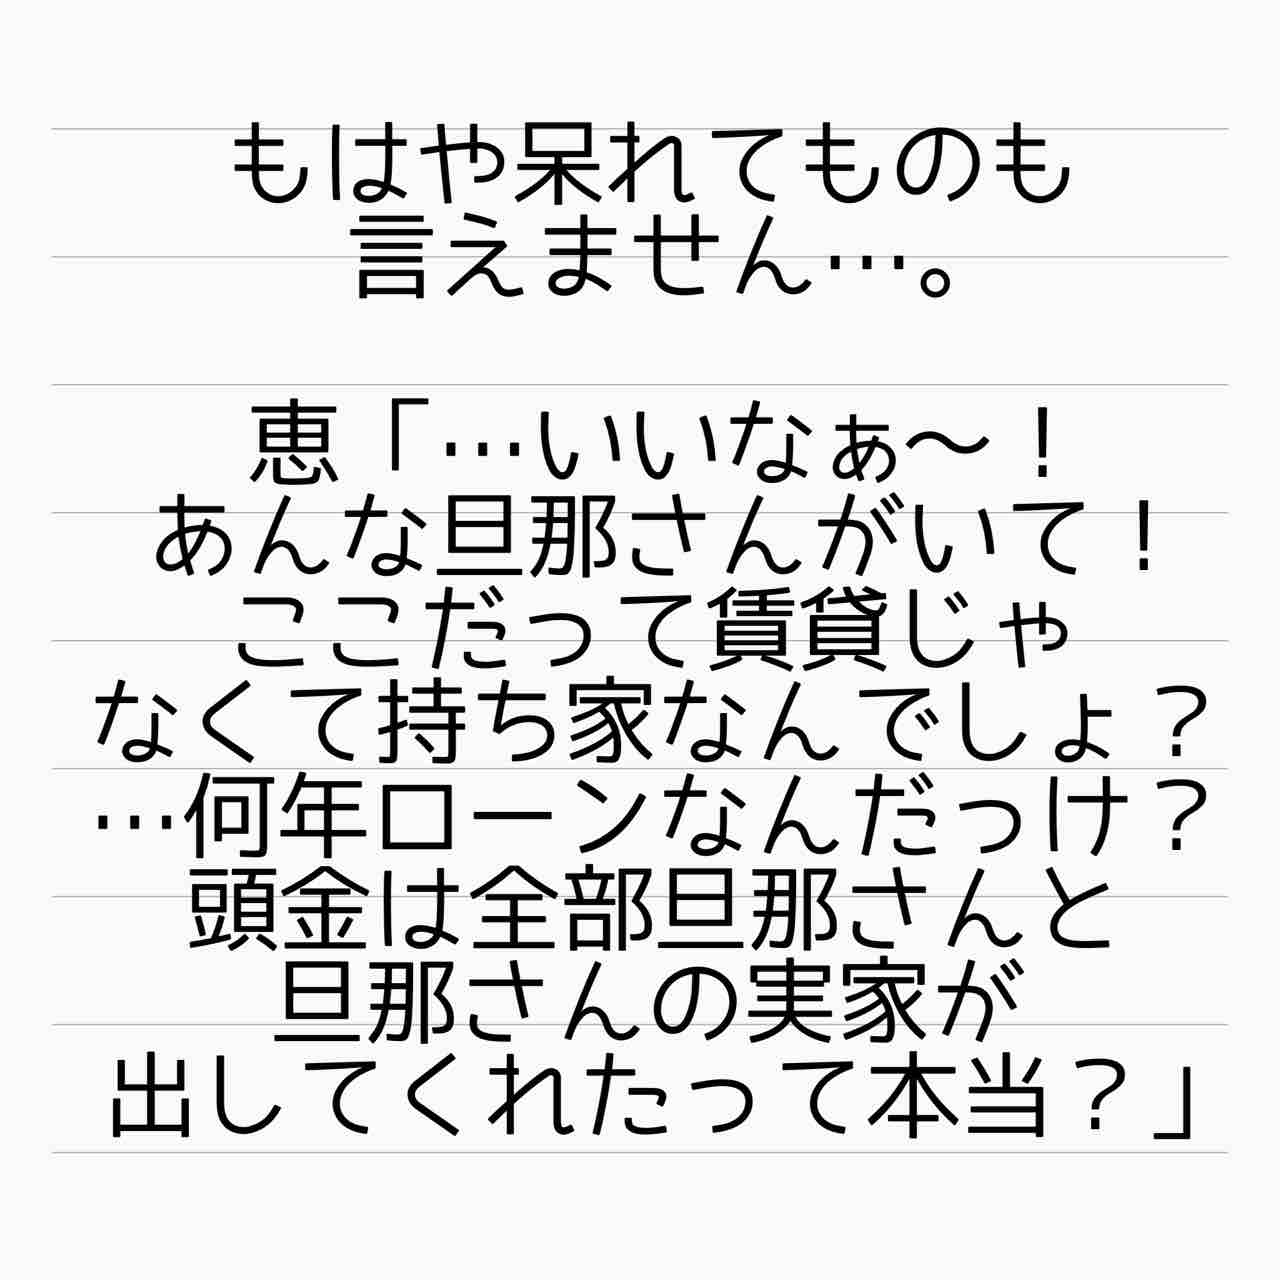 もはや呆れてものも
言えません…。
恵「…いいなぁ〜！
あんな旦那さんがいて！
ここだって賃貸じゃ
なくて持ち家なんでしょ？
…何年ローンなんだっけ？
頭金は全部旦那さんと
旦那さんの実家が
出してくれたって本当？」